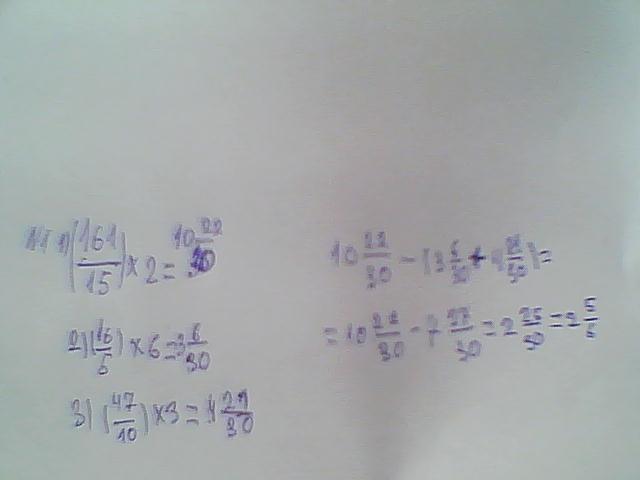 1) (161/15) × 2 = 10 22/30
2) (16/5) × 6 = 3 6/30
3) (47/10) × 3 = 4 21/30
10 22/30 - (3 6/30 + 4 21/30) =
= 10 22/30 - 7 27/30 = 2 25/30 = 2 5/6